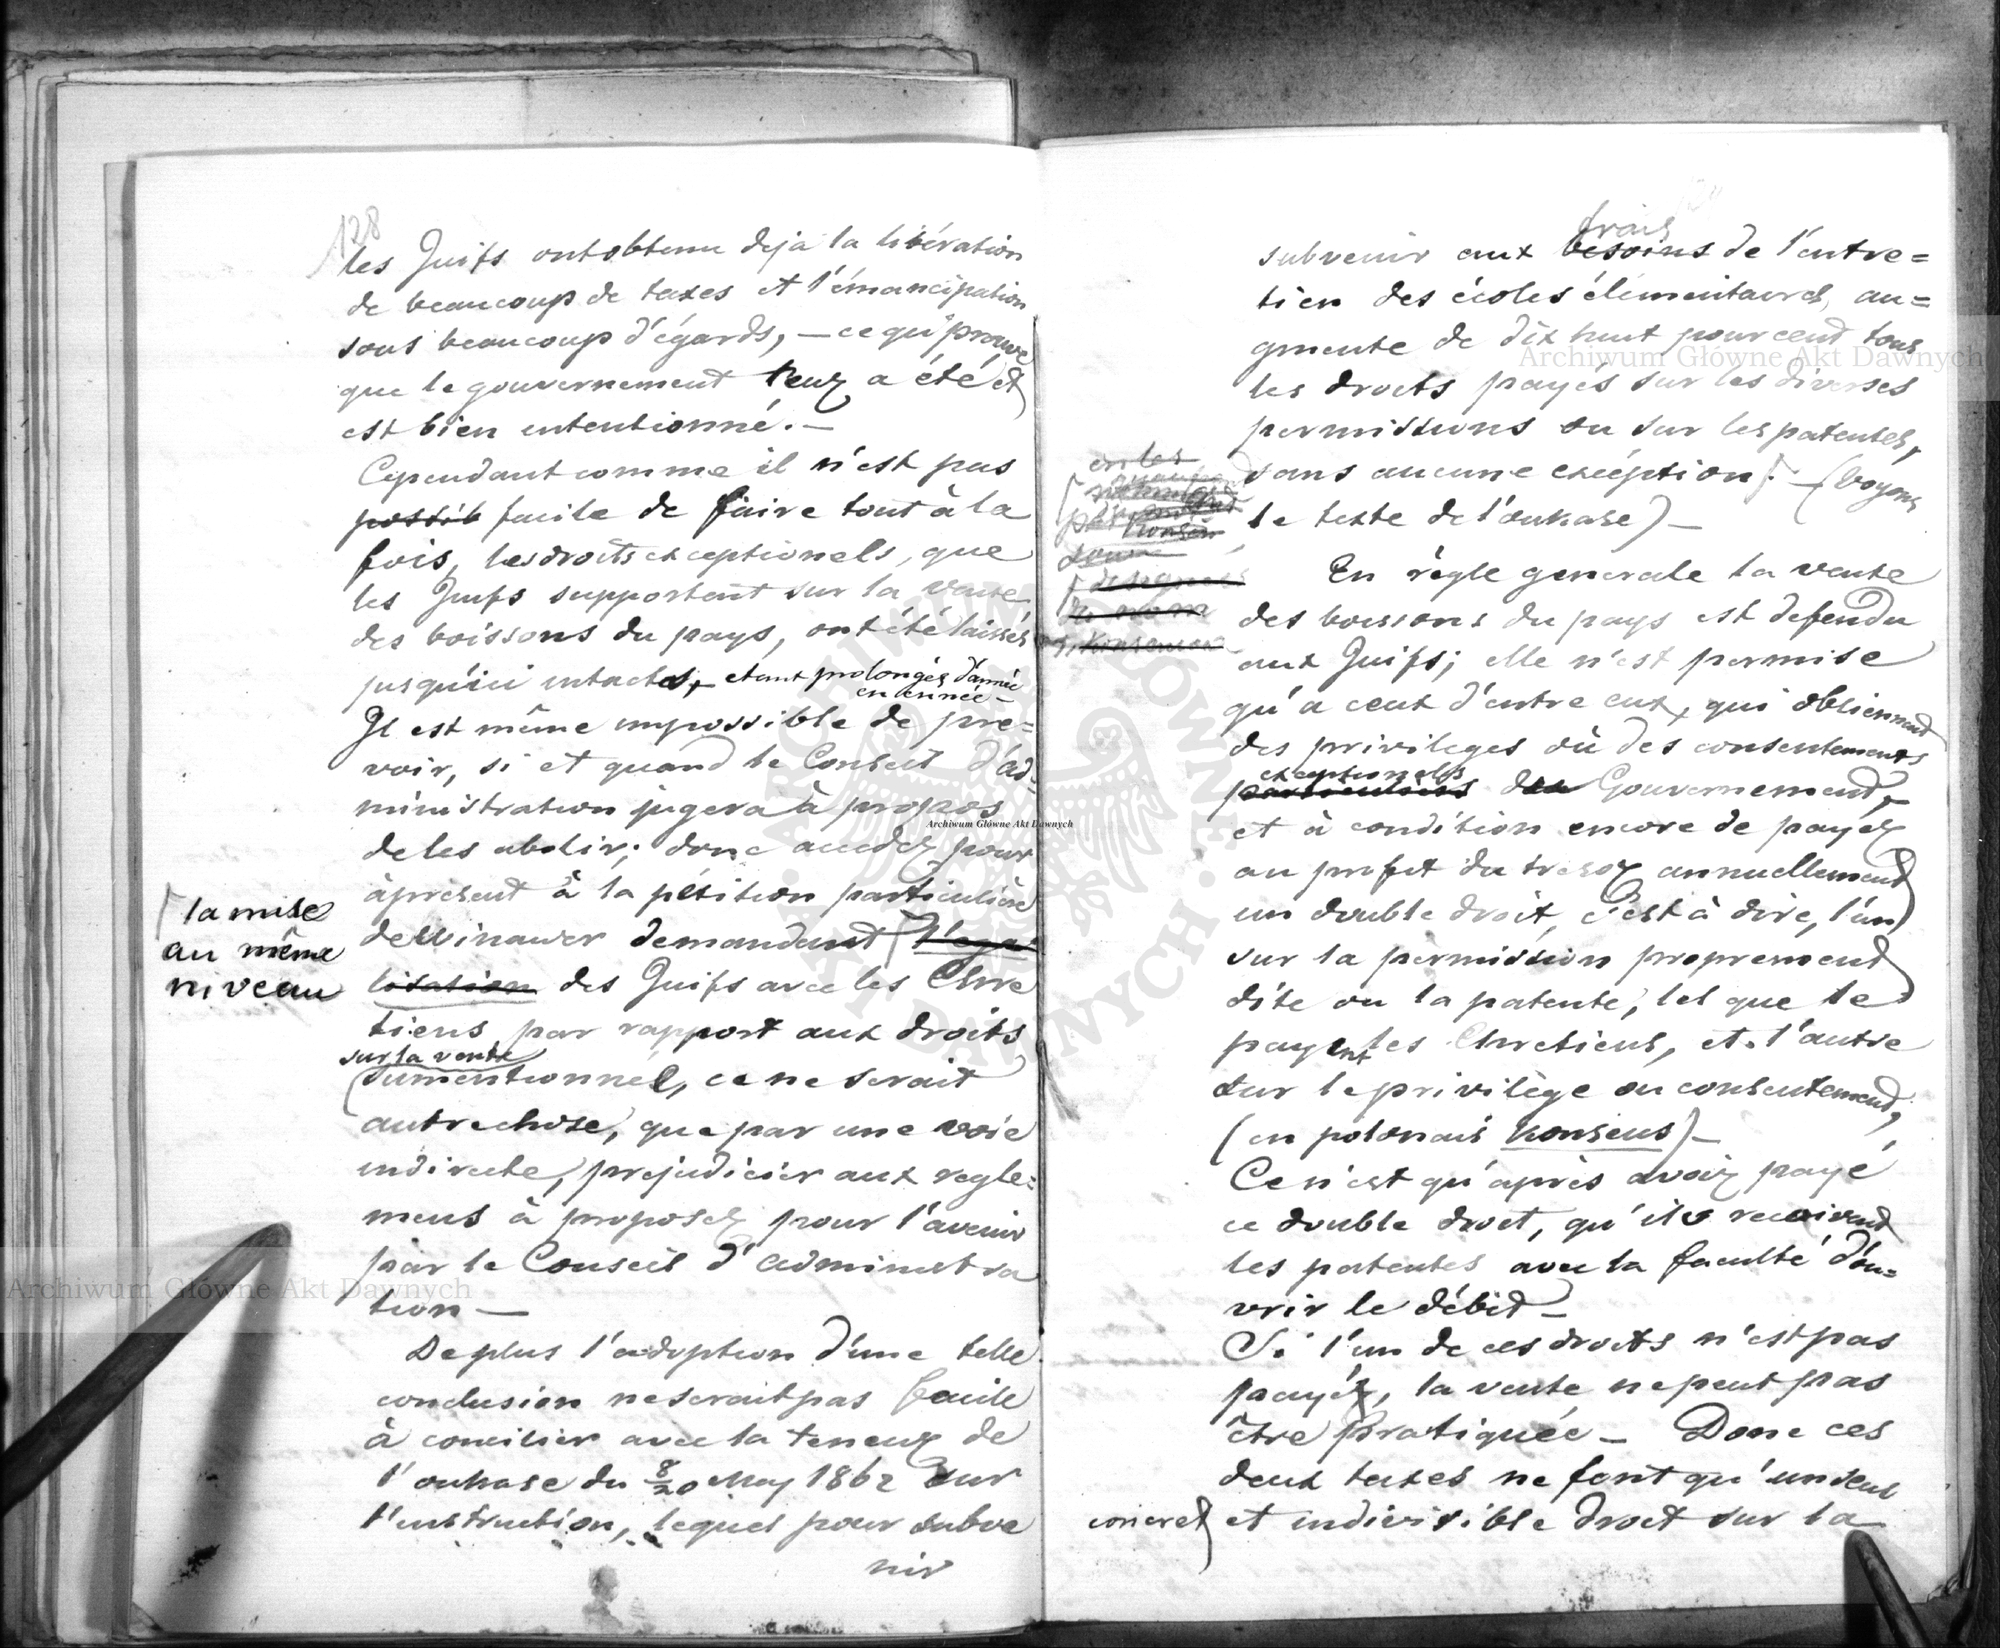 128
les Juifs ont obtenu deja la libération
de beaucoup de taxes et l'émancipation
sous beaucoup d'égards, — ce qui prouve
que le gouvernement leur a été et
est bien intentionné. —
Cependant comme il n'est pas
possib facile de faire tout à la
fois, les droits exceptionels, que
les Juifs supportent sur la vente
des boissons du pays, ont été laissés
jusqu'ici intactes, etant prolongés d'année
en année —
Il est même impossible de pre=
voir, si et quand le Conseil d'ad=
ministration jugera à propos
de les abolir; donc acceder pour
àprésent à la pétition particulière
de Winawer demandant l'ega
lisation des Juifs avec les Chre
la mise
au même
niveau
tiens par rapport aux droits
sur la vente
sumentionnée, ce ne serait
autre chose, que par une voie
indirecte, prejudicier aux regle=
mens à proposer pour l'avenir
par le Conseil d'administra
tion —
De plus l'adoption d'une telle
conclusion ne serait pas facile
à concilier avec la teneur de
l'oukase du 8/20 May 1862 sur
l'instruction, lequel pour subve
nir
frais
subvenir aux besoins de l'entre=
tien des écoles élementaires, au=
gmente de dix huit pour cent tous
les droits payés sur les diverses
permissions ou sur les patentes,
sans aucune exception. — (voyons
le texte de l'oukase) —
en les
En règle generale la vente
des boissons du pays est defendu
aux Juifs; elle n'est permise
qu'a ceux d'entre eux, qui obtiennent
des privileges où des consentements
exceptionels
particuliers du Gouvernement,
et à condition encore de payer
au profit du tresor annuellement
un double droit, c'est à dire, l'un
sur la permission proprement
dite ou la patente, tel que le
payent les Chretiens, et l'autre
sur le privilège ou consentement,
(en polonais Konsens) —
Ce n'est qu'après avoir payé
ce double droit, qu'ils recoivent
les patentes avec la faculté d'ou=
vrir le débit —
Si l'un de ces droits n'est pas
payé, la vente ne peut pas
être pratiquée — Donc ces
deux taxes ne font qu'un seul
concret et indivisible droit sur la
Archiwum Główne Akt Dawnych
Archiwum Główne Akt Dawnych
Archiwum Główne Akt Dawnych
ARCHIWUM GŁÓWNE AKT DAWNYCH